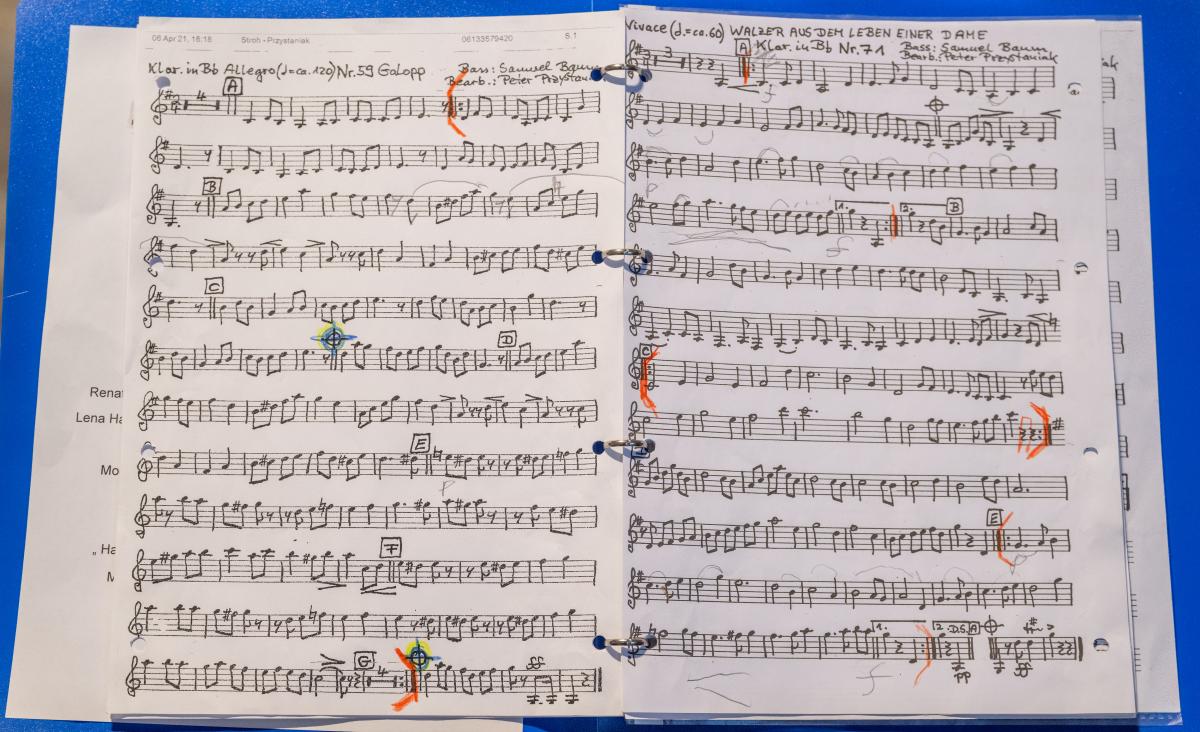 06 Apr 21, 16:18 Stroh - Przystaniak 06133579420 S.1
Klar. in Bb Allegro (♩=ca.120) Nr. 59 Galopp
Bass: Samuel Baum
Bearb.: Peter Przystaniak
A
4
B
C
D
E
p
F
G
4
ff
Renat
Lena Ha
Mo
„Ha
M
Vivace (♩.=ca.60) WALZER AUS DEM LEBEN EINER DAME
Klar. in Bb Nr. 71
Bass: Samuel Baum
Bearb.: Peter Przystaniak
A
3
f
p
1.
2.
B
f
C
E
p
1.
2. D.S. A
f
pp
ff